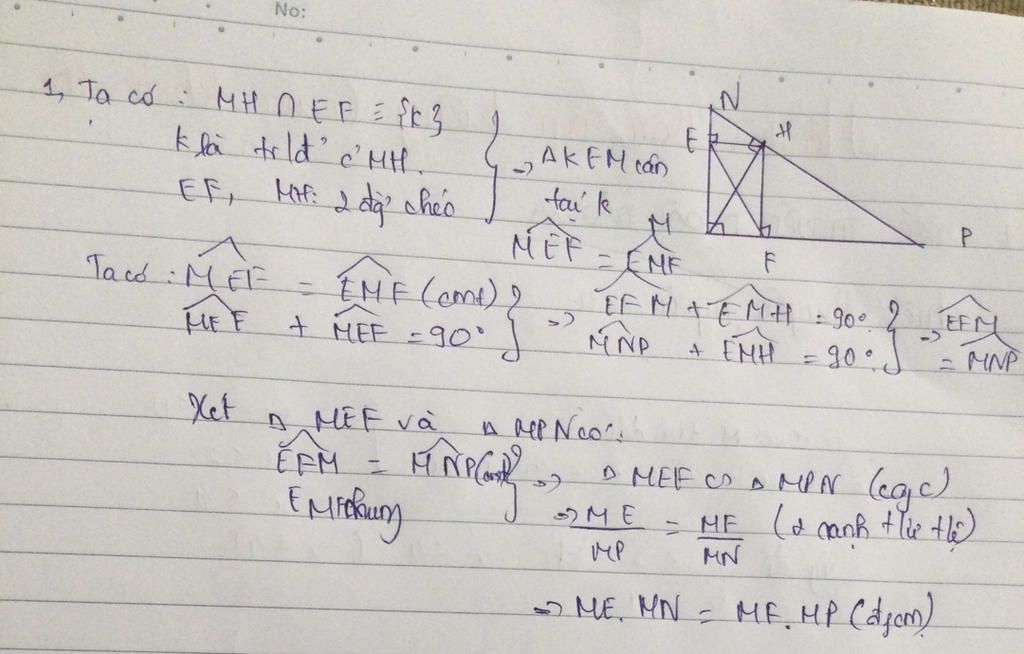 No:
1, Ta có : MH ∩ EF ≡ {K}
K là trđ' c' MH.
EF, MH: 2 đg' chéo
=> ΔKEM cân
tại K
MEF = EMF
N
E
H
M
F
P
Ta có : MEF = EMF (cmt)
MFE + MEF = 90°
=> EFM + EMH = 90°
MNP + EMH = 90°.
=> EFM
= MNP
Xét Δ MEF và Δ MPN có:
EFM = MNP (cmt)
EMF chung
=> Δ MEF ∽ Δ MPN (cgc)
=> ME/MP = MF/MN (2 cạnh tlứ tlệ)
=> ME. MN = MF. MP (đpcm)